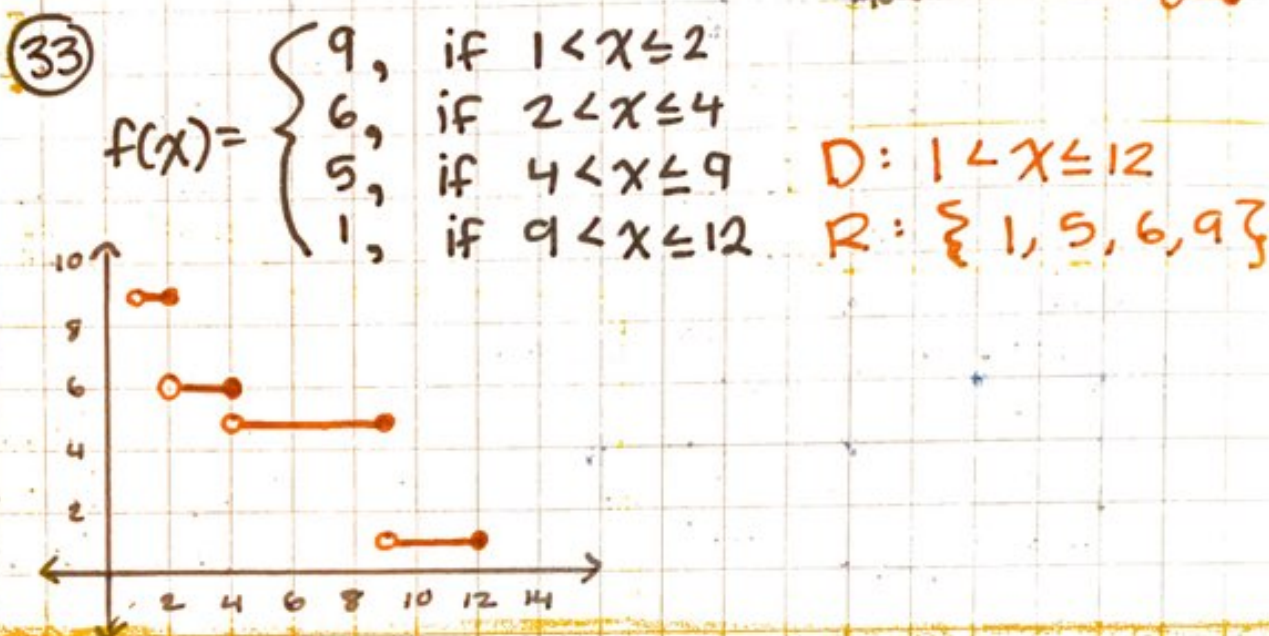 33
f(x)= { 9, if 1 < x ≤ 2
6, if 2 < x ≤ 4
5, if 4 < x ≤ 9
1, if 9 < x ≤ 12
D: 1 < x ≤ 12
R: { 1, 5, 6, 9 }
10
8
6
4
2
2 4 6 8 10 12 14